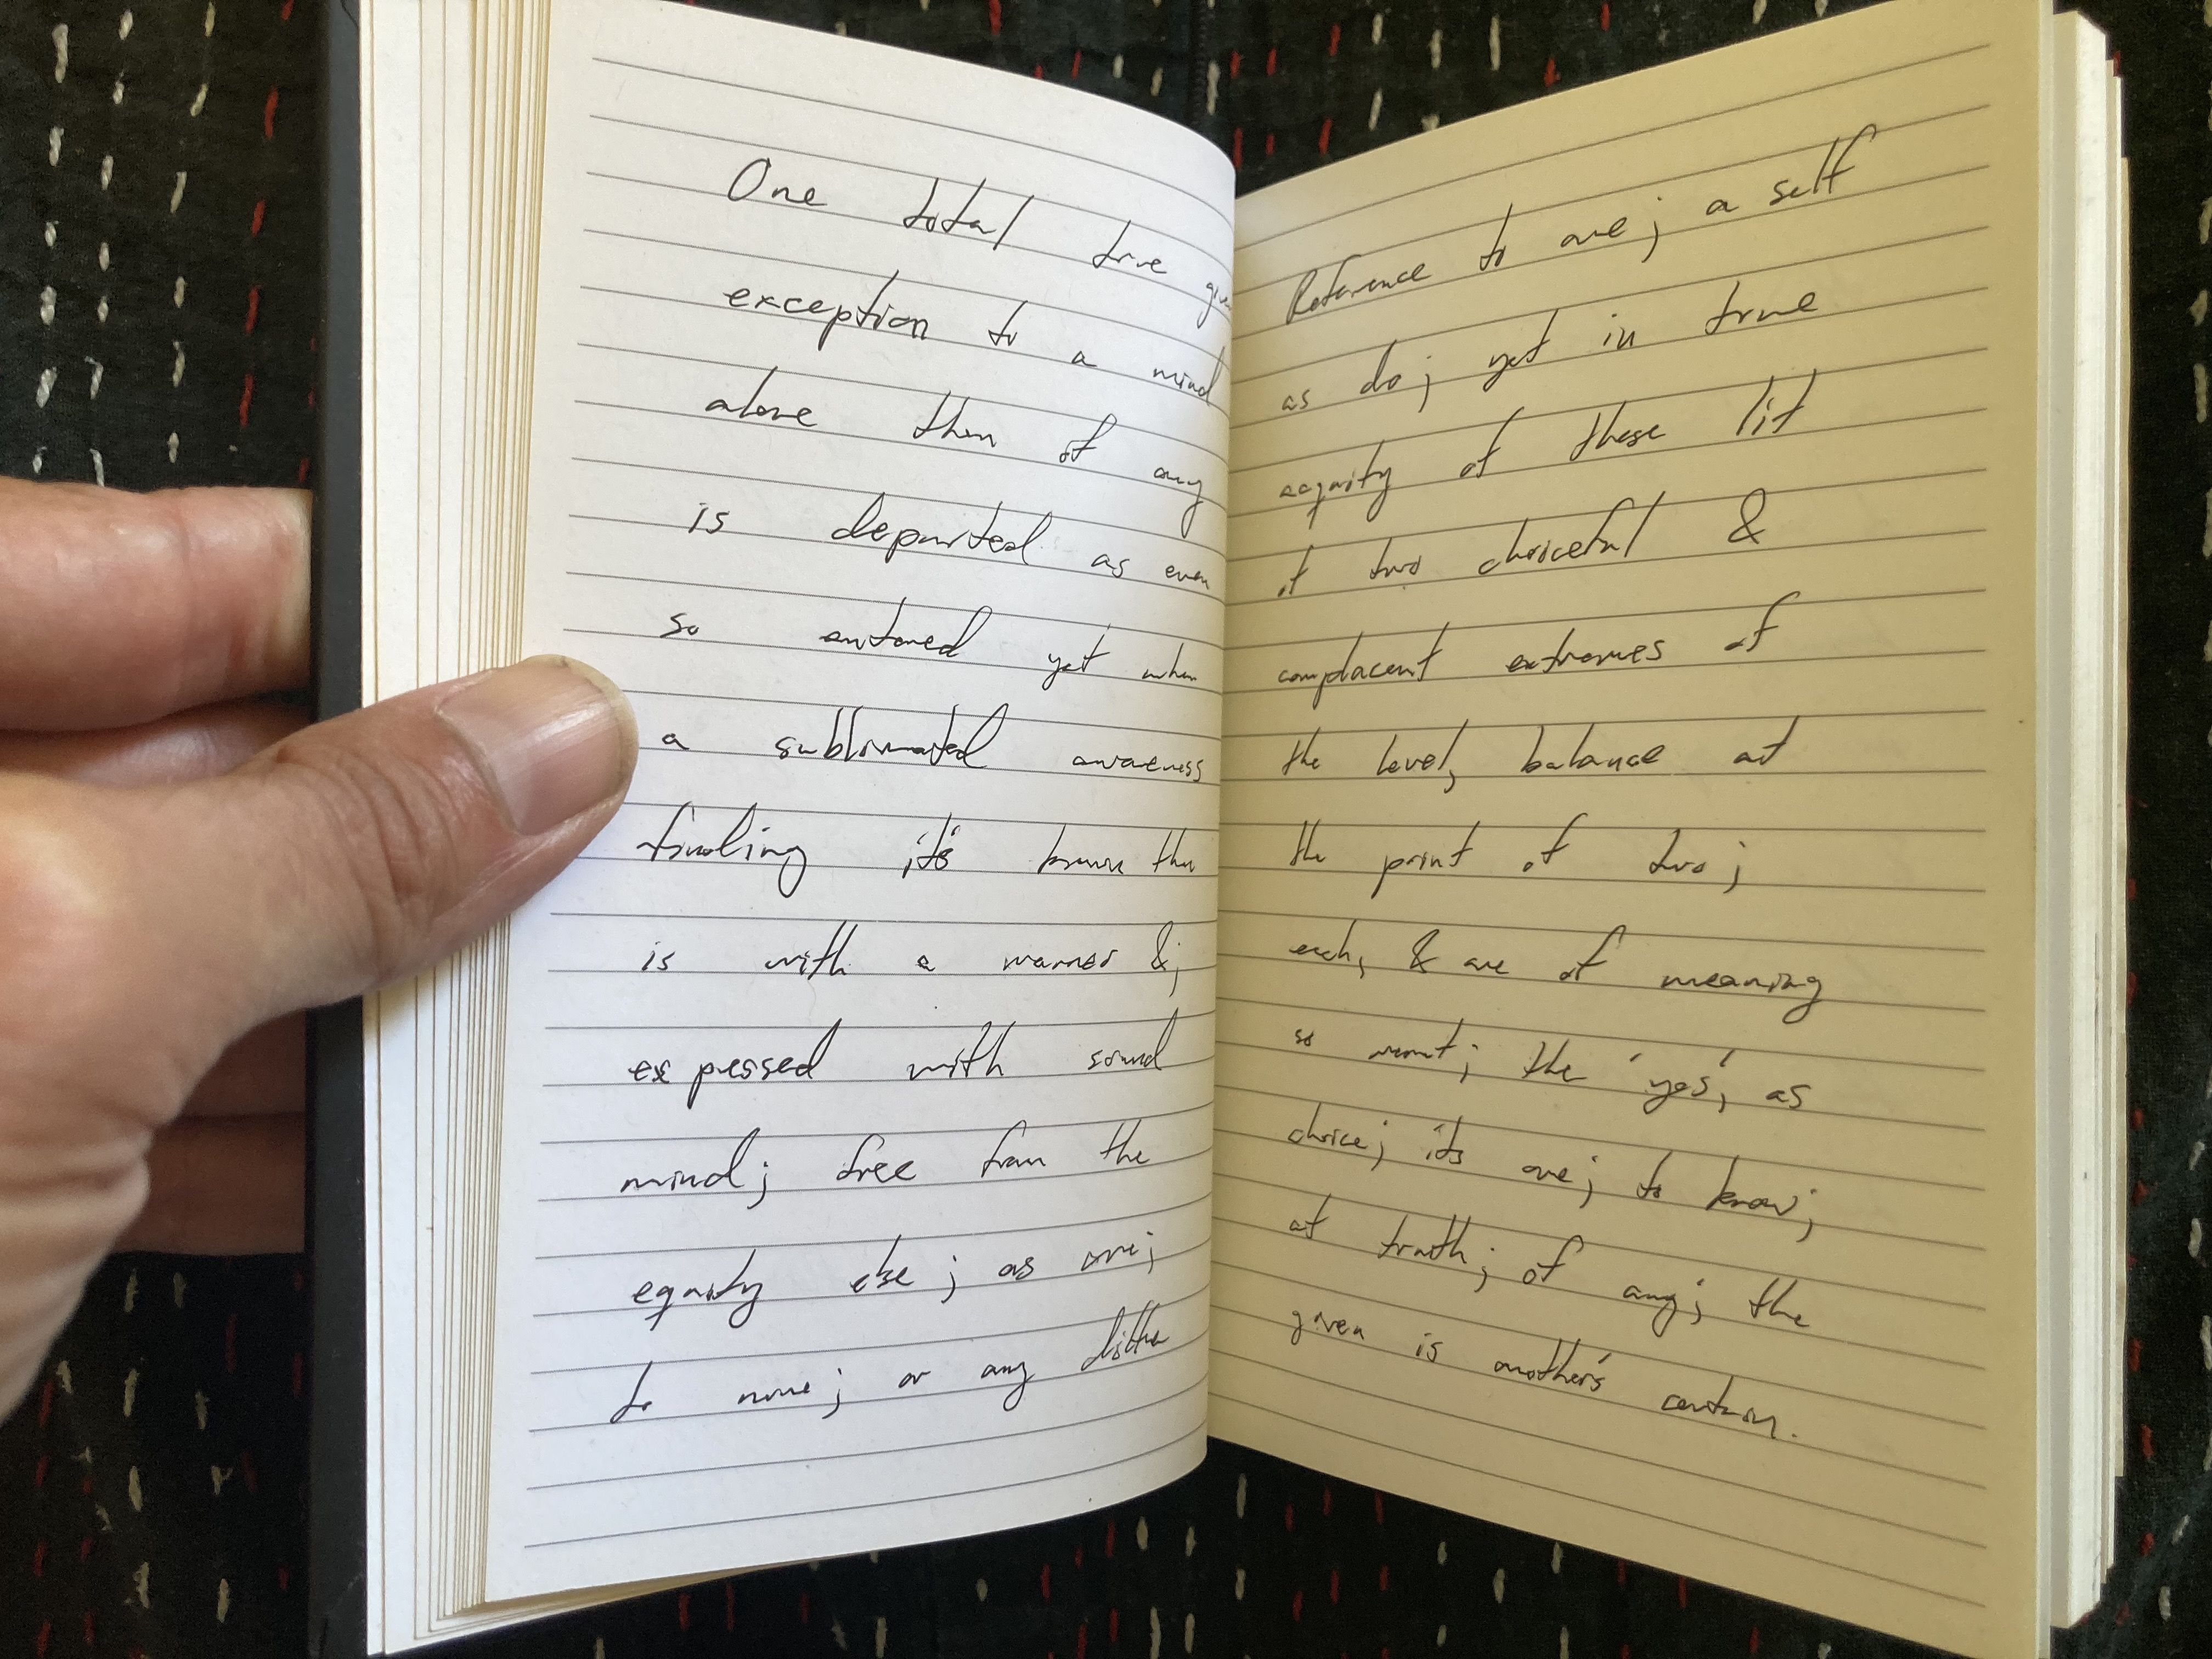 One total true given
exception to a mind
alone then of any
is departed as even
so entered yet when
a sublimated awareness
finding it's known then
is with a manner &;
expressed with sound
mind; free from the
equity else; as one;
to none; or any
Reference to one; a self
as do; yet in true
equity of these lit
of two choiceful &
complacent extremes of
the level, balance at
the point of two;
each, & are of meaning
so want; the 'yes', as
choice; its one; to know;
at truth; of any; the
given is another's certain.